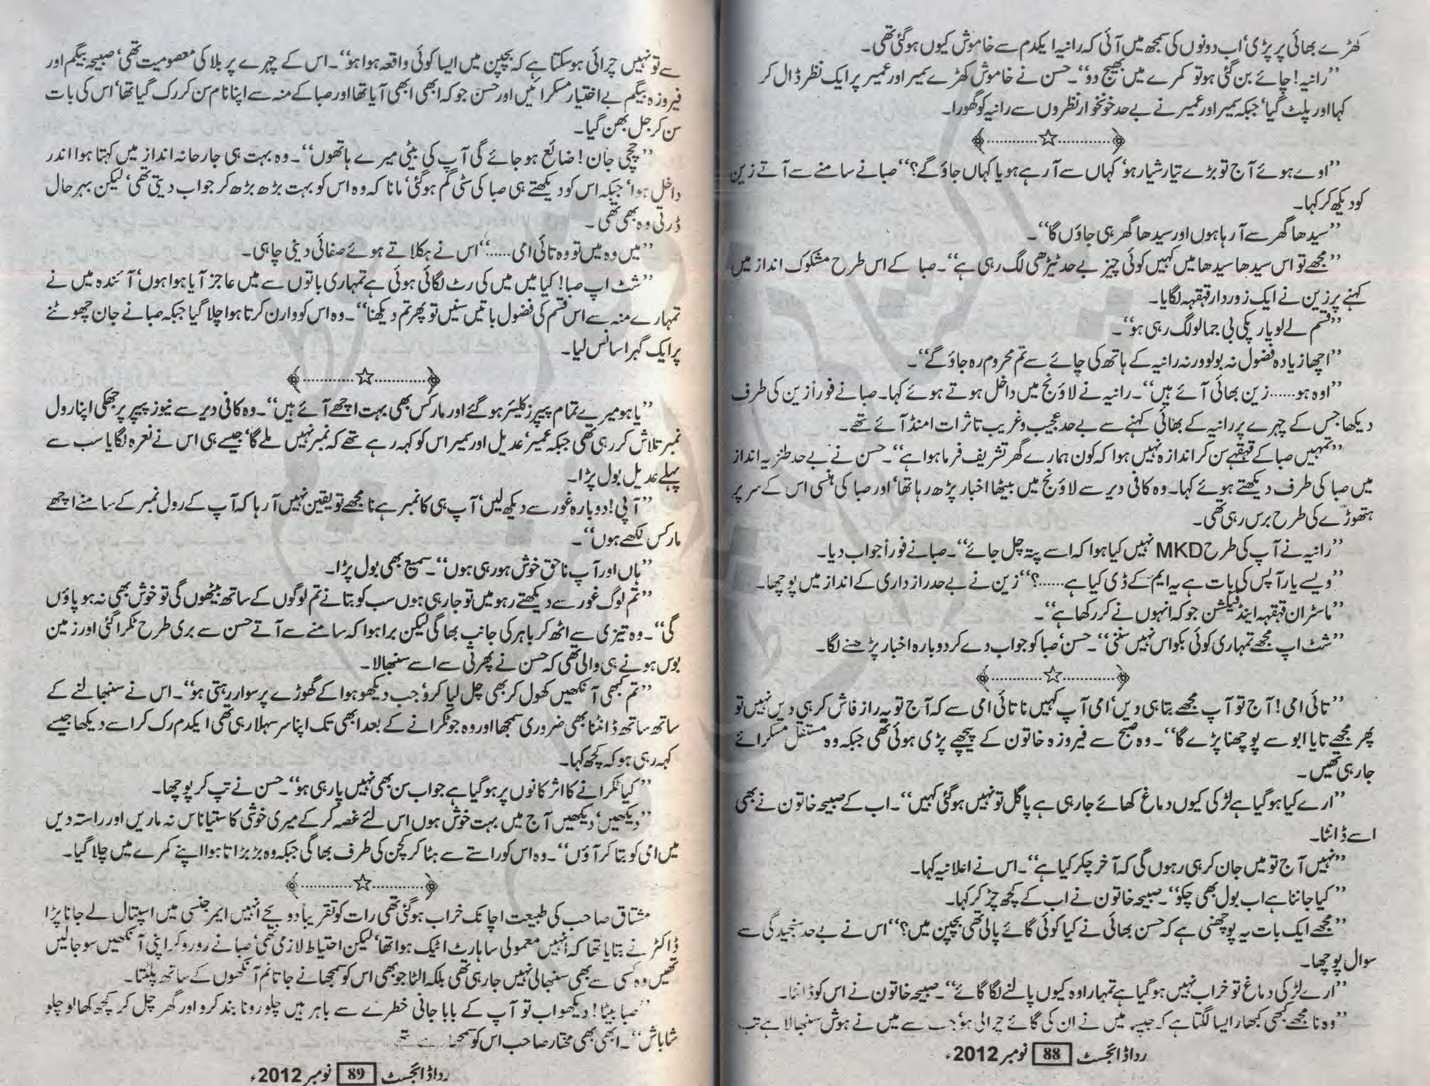 کھڑے بھائی پر پڑی‘ اب دونوں کی سمجھ میں آئی کہ رانیہ ایکدم سے خاموش کیوں ہوگئی تھی۔
’’رانیہ! چائے بن گئی ہو تو کمرے میں بھیج دو‘‘۔ حسن نے خاموش کھڑے سمیر اور عمیر پر ایک نظر ڈال کر
کہا اور پلٹ گیا‘ جبکہ سمیر اور عمیر نے بے حد خونخوار نظروں سے رانیہ کو گھورا۔
’’اوے ہوئے آج تو بڑے تیار شیار ہو‘ کہاں سے آرہے ہو یا کہاں جاؤ گے؟‘‘ صبا نے سامنے سے آتے زین
کو دیکھ کر کہا۔
’’سیدھا گھر سے آرہا ہوں اور سیدھا گھر ہی جاؤں گا‘‘۔
’’مجھے تو اس سیدھا سیدھا میں کہیں کوئی چیز بے حد ٹیڑھی لگ رہی ہے‘‘۔ صبا کے اس طرح مشکوک انداز میں
کہنے پر زین نے ایک زور دار قہقہہ لگایا۔
’’قسم لے لو یار پکی بی جمالو لگ رہی ہو‘‘۔
’’اچھا زیادہ فضول نہ بولو ورنہ رانیہ کے ہاتھ کی چائے سے تم محروم رہ جاؤ گے‘‘۔
’’اوہ ہو...... زین بھائی آئے ہیں‘‘۔ رانیہ نے لاؤنج میں داخل ہوتے ہوئے کہا۔ صبا نے فوراً زین کی طرف
دیکھا جس کے چہرے پر رانیہ کے بھائی کہنے سے بے حد عجیب و غریب تاثرات امنڈ آئے تھے۔
’’تمہیں صبا کے قہقہے سن کر اندازہ نہیں ہوا کہ کون ہمارے گھر تشریف فرما ہوا ہے‘‘۔ حسن نے بے حد طنزیہ انداز
میں صبا کی طرف دیکھتے ہوئے کہا۔ وہ کافی دیر سے لاؤنج میں بیٹھا اخبار پڑھ رہا تھا‘ اور صبا کی ہنسی اس کے سر پر
ہتھوڑے کی طرح برس رہی تھی۔
’’رانیہ نے آپ کی طرح MKD نہیں کیا ہوا کہ اسے پتہ چل جائے‘‘۔ صبا نے فوراً جواب دیا۔
’’ویسے یار آپس کی بات ہے یہ ایم کے ڈی کیا ہے......؟‘‘ زین نے بے حد رازداری کے انداز میں پوچھا۔
’’ماسٹر ان قہقہہ اینڈ فیکشن جو کہ انہوں نے کر رکھا ہے‘‘۔
’’شٹ اپ مجھے تمہاری کوئی بکواس نہیں سننی‘‘۔ حسن‘ صبا کو جواب دے کر دوبارہ اخبار پڑھنے لگا۔
’’تائی امی! آج تو آپ مجھے بتا ہی دیں‘ امی آپ کہیں نا تائی امی سے کہ آج تو یہ راز فاش کر ہی دیں نہیں تو
پھر مجھے تایا ابو سے پوچھنا پڑے گا‘‘۔ وہ صبح سے فیروزہ خاتون کے پیچھے پڑی ہوئی تھی جبکہ وہ مستقل مسکرائے
جارہی تھیں۔
’’ارے کیا ہوگیا ہے لڑکی کیوں دماغ کھائے جارہی ہے پاگل تو نہیں ہوگئی کہیں‘‘۔ اب کے صبیحہ خاتون نے بھی
اسے ڈانٹا۔
’’نہیں آج تو میں جان کر ہی رہوں گی کہ آخر چکر کیا ہے‘‘۔ اس نے اعلانیہ کہا۔
’’کیا جاننا ہے اب بول بھی چکو‘‘۔ صبیحہ خاتون نے اب کے کچھ چڑ کر کہا۔
’’مجھے ایک بات یہ پوچھنی ہے کہ حسن بھائی نے کیا کوئی گائے پالی تھی بچپن میں؟‘‘ اس نے بے حد سنجیدگی سے
سوال پوچھا۔
’’ارے لڑکی دماغ تو خراب نہیں ہوگیا ہے تمہارا وہ کیوں پالنے لگا گائے‘‘۔ صبیحہ خاتون نے اس کو ڈانٹا۔
’’وہ نا مجھے کبھی کبھار ایسا لگتا ہے کہ جیسے میں نے ان کی گائے چرالی ہو‘ جب سے میں نے ہوش سنبھالا ہے تب
ردا ڈائجسٹ 88 نومبر 2012ء
سے تو نہیں چرائی ہو سکتا ہے کہ بچپن میں ایسا کوئی واقعہ ہوا ہو‘‘۔ اس کے چہرے پر بلا کی معصومیت تھی‘ صبیحہ بیگم اور
فیروزہ بیگم بے اختیار مسکرائیں اور حسن جو کہ ابھی ابھی آیا تھا اور صبا کے منہ سے اپنا نام سن کر رک گیا تھا‘ اس کی بات
سن کر جل بھن گیا۔
’’چچی جان! ضائع ہو جائے گی آپ کی بیٹی میرے ہاتھوں‘‘۔ وہ بہت ہی جارحانہ انداز میں کہتا ہوا اندر
داخل ہوا‘ جبکہ اس کو دیکھتے ہی صبا کی سٹی گم ہوگئی‘ مانا کہ وہ اس کو بہت بڑھ بڑھ کر جواب دیتی تھی‘ لیکن بہرحال
ڈرتی وہ بھی تھی۔
’’میں وہ میں تو وہ تائی امی......‘‘ اس نے ہکلاتے ہوئے صفائی دینی چاہی۔
’’شٹ اپ صبا! کیا میں میں کی رٹ لگائی ہوئی ہے تمہاری باتوں سے میں عاجز آیا ہوا ہوں‘ آئندہ میں نے
تمہارے منہ سے اس قسم کی فضول باتیں سنیں تو پھر تم دیکھنا‘‘۔ وہ اس کو وارن کرتا ہوا چلا گیا جبکہ صبا نے جان چھوٹنے
پر ایک گہرا سانس لیا۔
’’یاہو میرے تمام پیپرز کلیئر ہوگئے اور مارکس بھی بہت اچھے آئے ہیں‘‘۔ وہ کافی دیر سے نیوز پیپر پر جھکی اپنا رول
نمبر تلاش کر رہی تھی جبکہ عمیر‘ عدیل اور سمیر اس کو کہہ رہے تھے کہ نمبر نہیں ملے گا‘ جیسے ہی اس نے نعرہ لگایا سب سے
پہلے عدیل بول پڑا۔
’’آپی! دوبارہ غور سے دیکھ لیں‘ آپ ہی کا نمبر ہے نا مجھے تو یقین نہیں آرہا کہ آپ کے رول نمبر کے سامنے اچھے
مارکس لکھے ہوں‘‘۔
’’ہاں اور آپ ناحق خوش ہو رہی ہوں‘‘۔ سمیع بھی بول پڑا۔
’’تم لوگ غور سے دیکھتے رہو میں تو جارہی ہوں سب کو بتانے تم لوگوں کے ساتھ بیٹھوں گی تو خوش بھی نہ ہو پاؤں
گی‘‘۔ وہ تیزی سے اٹھ کر باہر کی جانب بھاگی لیکن برا ہوا کہ سامنے سے آتے حسن سے بری طرح ٹکرا گئی اور زمین
بوس ہونے ہی والی تھی کہ حسن نے پھرتی سے اسے سنبھالا۔
’’تم کبھی آنکھیں کھول کر بھی چل لیا کرو‘ جب دیکھو ہوا کے گھوڑے پر سوار رہتی ہو‘‘۔ اس نے سنبھالنے کے
ساتھ ساتھ ڈانٹنا بھی ضروری سمجھا اور وہ جو ٹکرانے کے بعد ابھی تک اپنا سر سہلا رہی تھی ایکدم رک کر اسے دیکھا جیسے
کہہ رہی ہو کہ کچھ کہا۔
’’کیا ٹکرانے کا اثر کانوں پر ہوگیا ہے جواب سن بھی نہیں پارہی ہو‘‘۔ حسن نے تپ کر پوچھا۔
’’دیکھیں‘ دیکھیں آج میں بہت خوش ہوں اس لئے غصہ کرکے میری خوشی کا ستیاناس نہ ماریں اور راستہ دیں
میں امی کو بتا کر آؤں‘‘۔ وہ اس کو راستے سے ہٹا کر کچن کی طرف بھاگی جبکہ وہ بڑبڑاتا ہوا اپنے کمرے میں چلا گیا۔
مشتاق صاحب کی طبیعت اچانک خراب ہوگئی تھی رات کو تقریباً دو بجے انہیں ایمرجنسی میں اسپتال لے جانا پڑا
ڈاکٹر نے بتایا تھا کہ انہیں معمولی سا ہارٹ اٹیک ہوا تھا‘ لیکن احتیاط لازمی تھی‘ صبا نے رو رو کر اپنی آنکھیں سوجالیں
تھیں وہ کسی سے بھی سنبھالی نہیں جارہی تھی بلکہ الٹا جو بھی اس کو سمجھانے جاتا نم آنکھوں کے ساتھ پلٹتا۔
’’صبا بیٹا! دیکھو اب تو آپ کے بابا جانی خطرے سے باہر ہیں چلو رونا بند کرو اور گھر چل کر کچھ کھا لو چلو
شاباش‘‘۔ ابھی بھی مختار صاحب اس کو سمجھا رہے تھے
ردا ڈائجسٹ 89 نومبر 2012ء